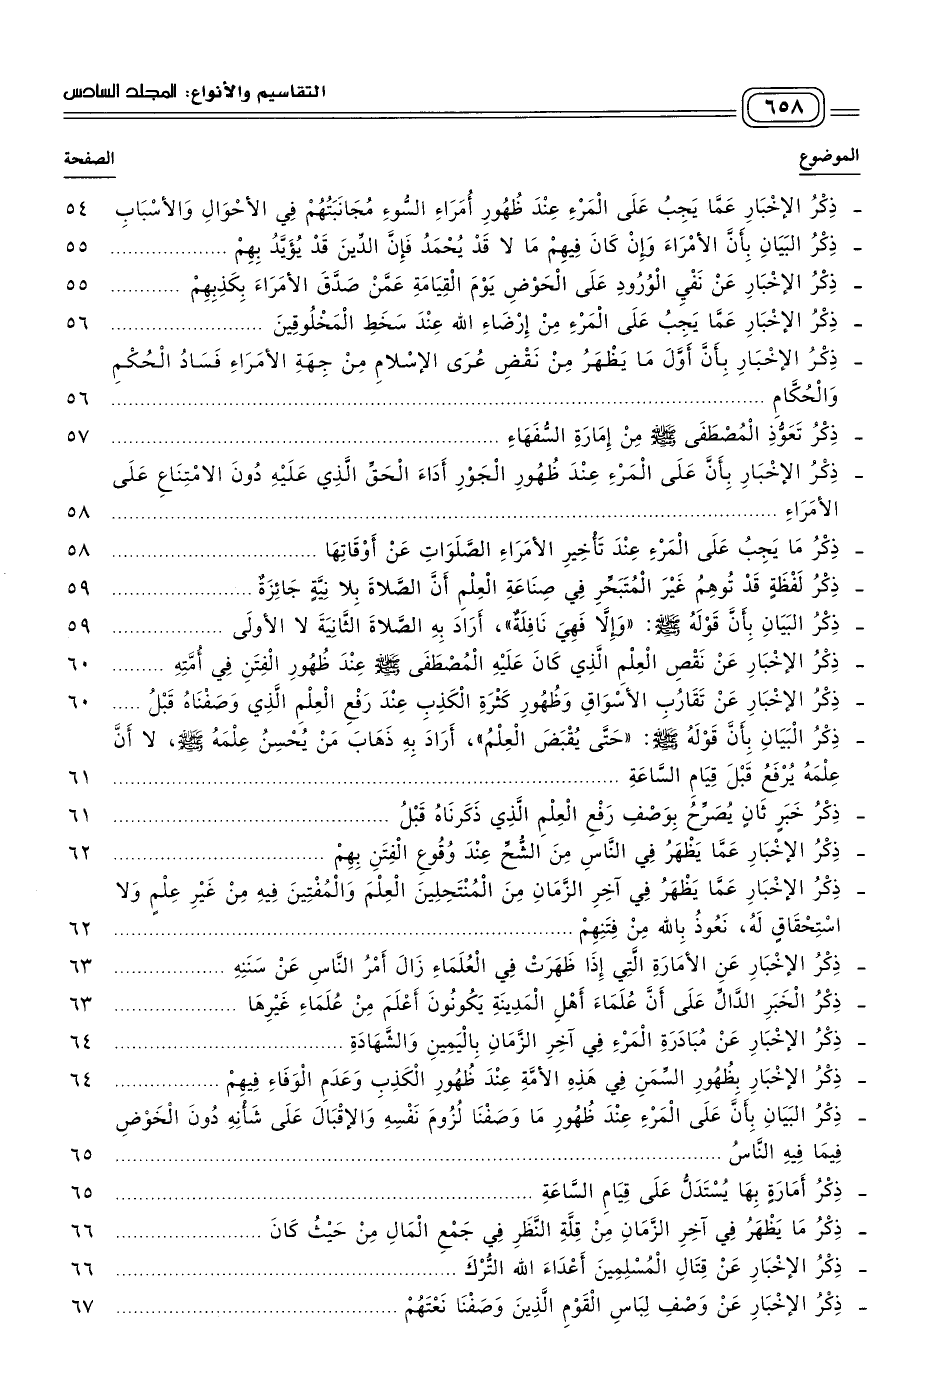 التقاسيم والأنواع: المجلد السادس
٦٥٨
الموضوع الصفحة
- ذِكْرُ الإخْبَارِ عَمَّا يَجِبُ عَلَى الْمَرْءِ عِنْدَ ظُهُورِ أُمَرَاءِ السُّوءِ مُجَانَبَتُهُمْ فِي الأَحْوَالِ وَالأَسْبَابِ ٥٤
- ذِكْرُ البَيَانِ بِأَنَّ الأُمَرَاءَ وَإِنْ كَانَ فِيهِمْ مَا لا قَدْ يُحْمَدُ فَإِنَّ الدِّينَ قَدْ يُؤَيَّدُ بِهِمْ ........................ ٥٥
- ذِكْرُ الإخْبَارِ عَنْ نَفْيِ الْوُرُودِ عَلَى الْحَوْضِ يَوْمَ الْقِيَامَةِ عَمَّنْ صَدَّقَ الأُمَرَاءَ بِكَذِبِهِمْ ............ ٥٥
- ذِكْرُ الإخْبَارِ عَمَّا يَجِبُ عَلَى الْمَرْءِ مِنْ إِرْضَاءِ الله عِنْدَ سَخَطِ الْمَخْلُوقِينَ ........................ ٥٦
- ذِكْرُ الإخْبَارِ بِأَنَّ أَوَّلَ مَا يَظْهَرُ مِنْ نَقْضِ عُرَى الإسْلامِ مِنْ جِهَةِ الأُمَرَاءِ فَسَادُ الْحُكْمِ
وَالْحُكَّامِ ........................ ٥٦
- ذِكْرُ تَعَوُّذِ الْمُصْطَفَى ﷺ مِنْ إِمَارَةِ السُّفَهَاءِ ........................ ٥٧
- ذِكْرُ الإخْبَارِ بِأَنَّ عَلَى الْمَرْءِ عِنْدَ ظُهُورِ الْجَوْرِ أَدَاءَ الْحَقِّ الَّذِي عَلَيْهِ دُونَ الامْتِنَاعِ عَلَى
الأُمَرَاءِ ........................ ٥٨
- ذِكْرُ مَا يَجِبُ عَلَى الْمَرْءِ عِنْدَ تَأْخِيرِ الأُمَرَاءِ الصَّلَوَاتِ عَنْ أَوْقَاتِهَا ........................ ٥٨
- ذِكْرُ لَفْظَةٍ قَدْ تُوهِمُ غَيْرَ الْمُتَبَحِّرِ فِي صِنَاعَةِ الْعِلْمِ أَنَّ الصَّلاةَ بِلا نِيَّةٍ جَائِزَةٌ ........................ ٥٩
- ذِكْرُ البَيَانِ بِأَنَّ قَوْلَهُ ﷺ: «وَإِلَّا فَهِيَ نَافِلَةٌ»، أَرَادَ بِهِ الصَّلاةَ الثَّانِيَةَ لا الأولَى ................ ٥٩
- ذِكْرُ الإخْبَارِ عَنْ نَقْصِ الْعِلْمِ الَّذِي كَانَ عَلَيْهِ الْمُصْطَفَى ﷺ عِنْدَ ظُهُورِ الْفِتَنِ فِي أُمَّتِهِ ......... ٦٠
- ذِكْرُ الإخْبَارِ عَنْ تَقَارُبِ الأَسْوَاقِ وَظُهُورِ كَثْرَةِ الْكَذِبِ عِنْدَ رَفْعِ الْعِلْمِ الَّذِي وَصَفْنَاهُ قَبْلُ ..... ٦٠
- ذِكْرُ الْبَيَانِ بِأَنَّ قَوْلَهُ ﷺ: «حَتَّى يُقْبَضَ الْعِلْمُ»، أَرَادَ بِهِ ذَهَابَ مَنْ يُحْسِنُ عِلْمَهُ ﷺ، لا أَنَّ
عِلْمَهُ يُرْفَعُ قَبْلَ قِيَامِ السَّاعَةِ ........................ ٦١
- ذِكْرُ خَبَرٍ ثَانٍ يُصَرِّحُ بِوَصْفِ رَفْعِ الْعِلْمِ الَّذِي ذَكَرنَاهُ قَبْلُ ........................ ٦١
- ذِكْرُ الإخْبَارِ عَمَّا يَظْهَرُ فِي النَّاسِ مِنَ الشُّحِّ عِنْدَ وُقُوعِ الْفِتَنِ بِهِمْ ........................ ٦٢
- ذِكْرُ الإخْبَارِ عَمَّا يَظْهَرُ فِي آخِرِ الزَّمَانِ مِنَ الْمُنْتَحِلِينَ الْعِلْمَ وَالْمُفْتِينَ فِيهِ مِنْ غَيْرِ عِلْمٍ وَلا
اسْتِحْقَاقٍ لَهُ، نَعُوذُ بِالله مِنْ فِتَنِهِمْ ........................ ٦٢
- ذِكْرُ الإخْبَارِ عَنِ الأمَارَةِ الَّتِي إِذَا ظَهَرَتْ فِي الْعُلَمَاءِ زَالَ أَمْرُ النَّاسِ عَنْ سَنَنِهِ .................... ٦٣
- ذِكْرُ الْخَبَرِ الدَّالِّ عَلَى أَنَّ عُلَمَاءَ أَهْلِ الْمَدِينَةِ يَكُونُونَ أَعْلَمَ مِنْ عُلَمَاءِ غَيْرِهَا .................... ٦٣
- ذِكْرُ الإخْبَارِ عَنْ مُبَادَرَةِ الْمَرْءِ فِي آخِرِ الزَّمَانِ بِالْيَمِينِ وَالشَّهَادَةِ ........................ ٦٤
- ذِكْرُ الإخْبَارِ بِظُهُورِ السِّمَنِ فِي هَذِهِ الأمَّةِ عِنْدَ ظُهُورِ الْكَذِبِ وَعَدَمِ الْوَفَاءِ فِيهِمْ .................... ٦٤
- ذِكْرُ البَيَانِ بِأَنَّ عَلَى الْمَرْءِ عِنْدَ ظُهُورِ مَا وَصَفْنَا لُزُومَ نَفْسِهِ وَالإقْبَالَ عَلَى شَأْنِهِ دُونَ الْخَوْضِ
فِيمَا فِيهِ النَّاسُ ........................ ٦٥
- ذِكْرُ أَمَارَةٍ بِهَا يُسْتَدَلُّ عَلَى قِيَامِ السَّاعَةِ ........................ ٦٥
- ذِكْرُ مَا يَظْهَرُ فِي آخِرِ الزَّمَانِ مِنْ قِلَّةِ النَّظَرِ فِي جَمْعِ الْمَالِ مِنْ حَيْثُ كَانَ ........................ ٦٦
- ذِكْرُ الإخْبَارِ عَنْ قِتَالِ الْمُسْلِمِينَ أَعْدَاءَ الله التُّرْكَ ........................ ٦٦
- ذِكْرُ الإخْبَارِ عَنْ وَصْفِ لِبَاسِ الْقَوْمِ الَّذِينَ وَصَفْنَا نَعْتَهُمْ ........................ ٦٧